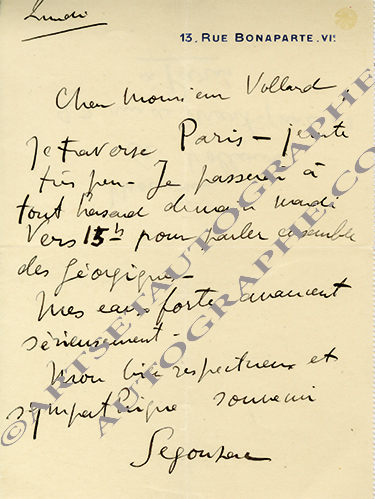 Lundi
13, RUE BONAPARTE. VIe
Cher Monsieur Vollard,
Je traverse Paris – je reste
très peu – Je passerai à
tout hasard demain mardi
vers 15h pour parler ensemble
des Géorgiques –
Mes eaux fortes avancent
sérieusement –
Mon bien respectueux et
sympathique souvenir
Segonzac
© ARTSETAUTOGRAPHE
AUTOGRAPHE.CO